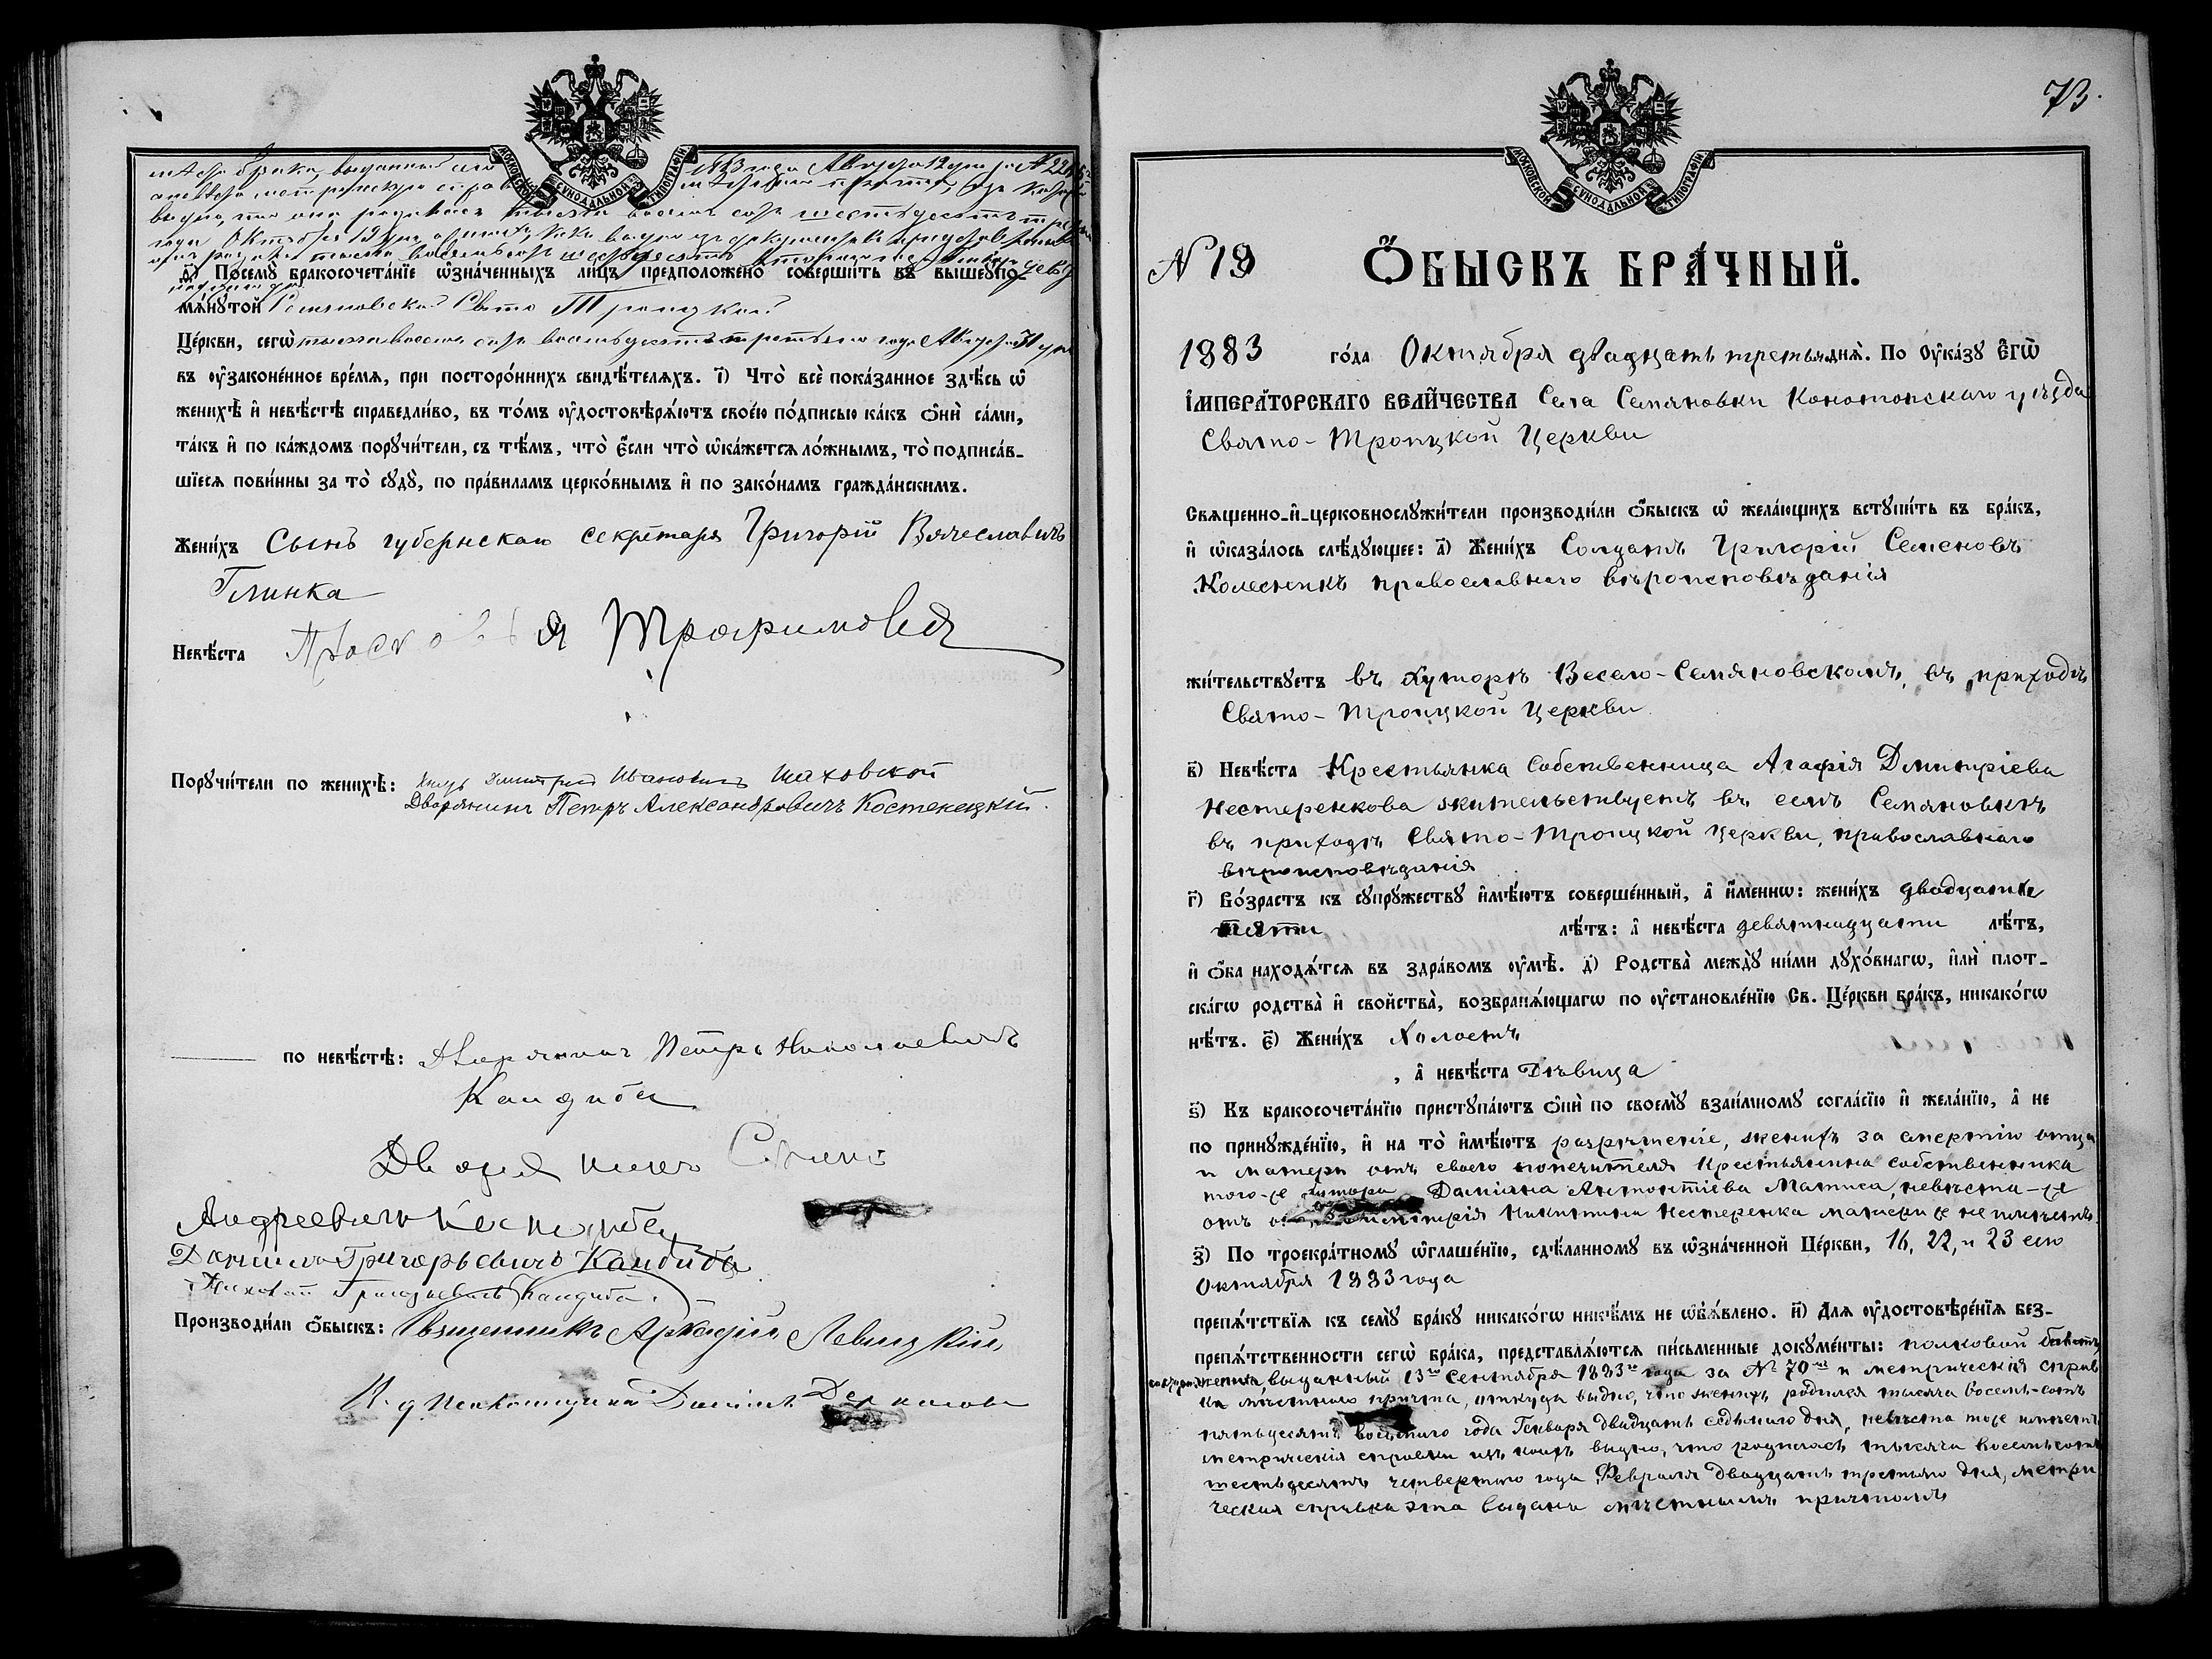 МОСКОВСКОЙ СѴНОДАЛЬНОЙ ТИПОГРАФІИ
1883 года Августа 12 дня за №
видно, что она родилась тысяча восемь сотъ шестьдесятъ
года Октября 12 дня
ѳ҃) Посемꙋ̀ бракосочета́нїе ѡ҆зна́ченныхъ лицъ предположено̀ соверши́ть въ вышеꙋпо-
мѧ́нꙋтой Семяновской Свято Троицкой
Це́ркви, сегѡ̀ тысяча восемь сотъ восемьдесятъ третьяго года Августа 31 дня
въ ᲂу҆законе́нное вре́мѧ, при посторо́ннихъ свидѣ́телѧхъ. і҃) Что̀ всѐ пока́занное здѣ́сь ѡ҆
женихѣ̀ и҆ невѣ́стѣ справедли́во, въ то́мъ ᲂу҆достовѣрѧ́ютъ свое́ю по́дписью ка́къ ѻ҆нѝ са́ми,
та́къ и҆ по ка́ждомъ порꙋчи́тели, съ тѣ́мъ, что̀ є҆́сли что̀ ѡ҆ка́жетсѧ ло́жнымъ, то̀ подписа́в-
шїесѧ пови́нны за то̀ сꙋдꙋ̀, по пра́виламъ церко́внымъ и҆ по зако́намъ гражда́нскимъ.
Жени́хъ Сынъ губернскаго секретаря Григорій Вячеславичъ
Глинка
Невѣ́ста Просковья Трофимовна
Порꙋчи́тели по женихѣ̀: Князь Дмитрій Ивановичъ Шаховской
Дворянинъ Петръ Александровичъ Костенецкій.
по невѣ́стѣ: Дворянинъ Петръ Николаевичъ
Кандиба
Дворянинъ
Андреевичъ Кандиба
Даніилъ Григорьевичъ Кандиба
Григорьевичъ Кандиба.
Производи́ли ѻ҆́быскъ: Священникъ Аркадій Левицкій
И. д. псаломщика Даніилъ
73.
МОСКОВСКОЙ СѴНОДАЛЬНОЙ ТИПОГРАФІИ
№ 19 Ѻ҆́БЫСКЪ БРА́ЧНЫЙ.
1883 го́да Октября двадцать третьяго днѧ̀. По ᲂу҆ка́зꙋ Є҆гѡ̀
І҆МПЕРА́ТОРСКАГО ВЕЛИ́ЧЕСТВА Села Семяновки Конотопскаго уѣзда
Свято-Троицкой Церкви
Свѧщенно-и҆-церковнослꙋжи́тели производи́ли ѻ҆́быскъ ѡ҆ жела́ющихъ встꙋпи́ть въ бра́къ,
и҆ ѡ҆каза́лось слѣ́дꙋющее: а҃) Жени́хъ Солдатъ Григорій Семеновъ
Колесникъ православнаго вѣроисповѣданія
жи́тельствꙋетъ въ Хуторѣ Весело-Семяновскомъ, въ приходѣ
Свято-Троицкой Церкви
в҃) Невѣ́ста Крестьянка Собственница Агафія Дмитріева
Нестеренкова жительствуетъ въ селѣ Семяновкѣ
въ приходѣ Свято-Троицкой Церкви, православнаго
вѣроисповѣданія
г҃) Во́зрастъ къ сꙋпрꙋ́жествꙋ и҆мѣ́ютъ соверше́нный, а҆ и҆́меннѡ: жени́хъ двадцати
пяти лѣ́тъ: а҆ невѣ́ста девятнадцати лѣ́тъ,
и҆ ѻ҆́ба нахо́дѧтсѧ въ здра́вомъ ᲂу҆мѣ̀. д҃) Родства̀ междꙋ̀ ни́ми дꙋхо́внагѡ, и҆лѝ плот-
ска́гѡ родства̀ и҆ свойства̀, возбранѧ́ющагѡ по ᲂу҆становле́нїю Св. Це́ркви бра́къ, никако́гѡ
нѣ́тъ. є҃) Жени́хъ Холостъ
, а҆ невѣ́ста Дѣвица
ѕ҃) Къ бракосочета́нїю пристꙋпа́ютъ ѻ҆нѝ по своемꙋ̀ взаи́мномꙋ согла́сїю и҆ жела́нїю, а҆ не
по принꙋжде́нїю, и҆ на то̀ и҆мѣ́ютъ разрѣшеніе, женихъ за смертію отца
и матери отъ своего попечителя Крестьянина собственника
того-же хутора Даміана Антонтіева Матиса, невѣста-же
отъ Димитрія Никитина Нестеренка матери же не имѣетъ.
з҃) По троекра́тномꙋ ѡ҆глаше́нїю, сдѣ́ланномꙋ въ ѡ҆зна́ченной Це́ркви, 16, 22, и 23 его
Октября 1883 года
препѧ́тствїѧ къ семꙋ̀ бра́кꙋ никако́гѡ никѣ́мъ не ѡ҆б̾ѧ́влено. и҃) Длѧ ᲂу҆достовѣре́нїѧ без-
препѧ́тственности сегѡ̀ бра́ка, представлѧ́ютсѧ пи́сьменные докꙋме́нты: полковой билетъ
жениха, выданный 13го Сентября 1883го года за № 70мъ и метрическія справ
ка мѣстнаго причта, откуда видно, что женихъ родился тысяча восемь-сотъ
пятьдесятъ восьмаго года Генваря двадцать седьмаго дня, невѣста тоже имѣетъ
метрическія справки изъ коихъ видно, что родилась тысяча восемьсотъ
шестьдесятъ четвертаго года Февраля двадцать третьяго дня, метри
ческая справка эта выдана мѣстнымъ причтомъ